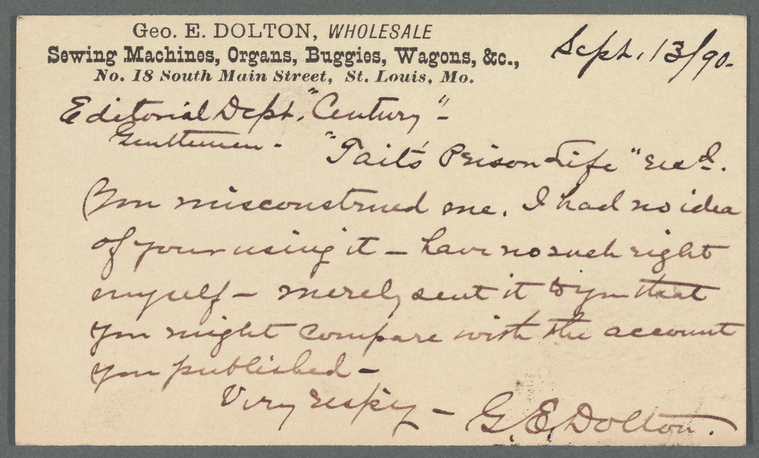 Geo. E. DOLTON, WHOLESALE
Sewing Machines, Organs, Buggies, Wagons, &c.,
No. 18 South Main Street, St. Louis, Mo.
Sept. 13/90.
Editorial Dept. "Century" -
Gentlemen - "Tait's Prison-Life" recd.
You misconstrued me. I had no idea
of your using it - have no such right
myself - merely sent it to you that
you might compare with the account
you published -
Very respy - G. E. Dolton.